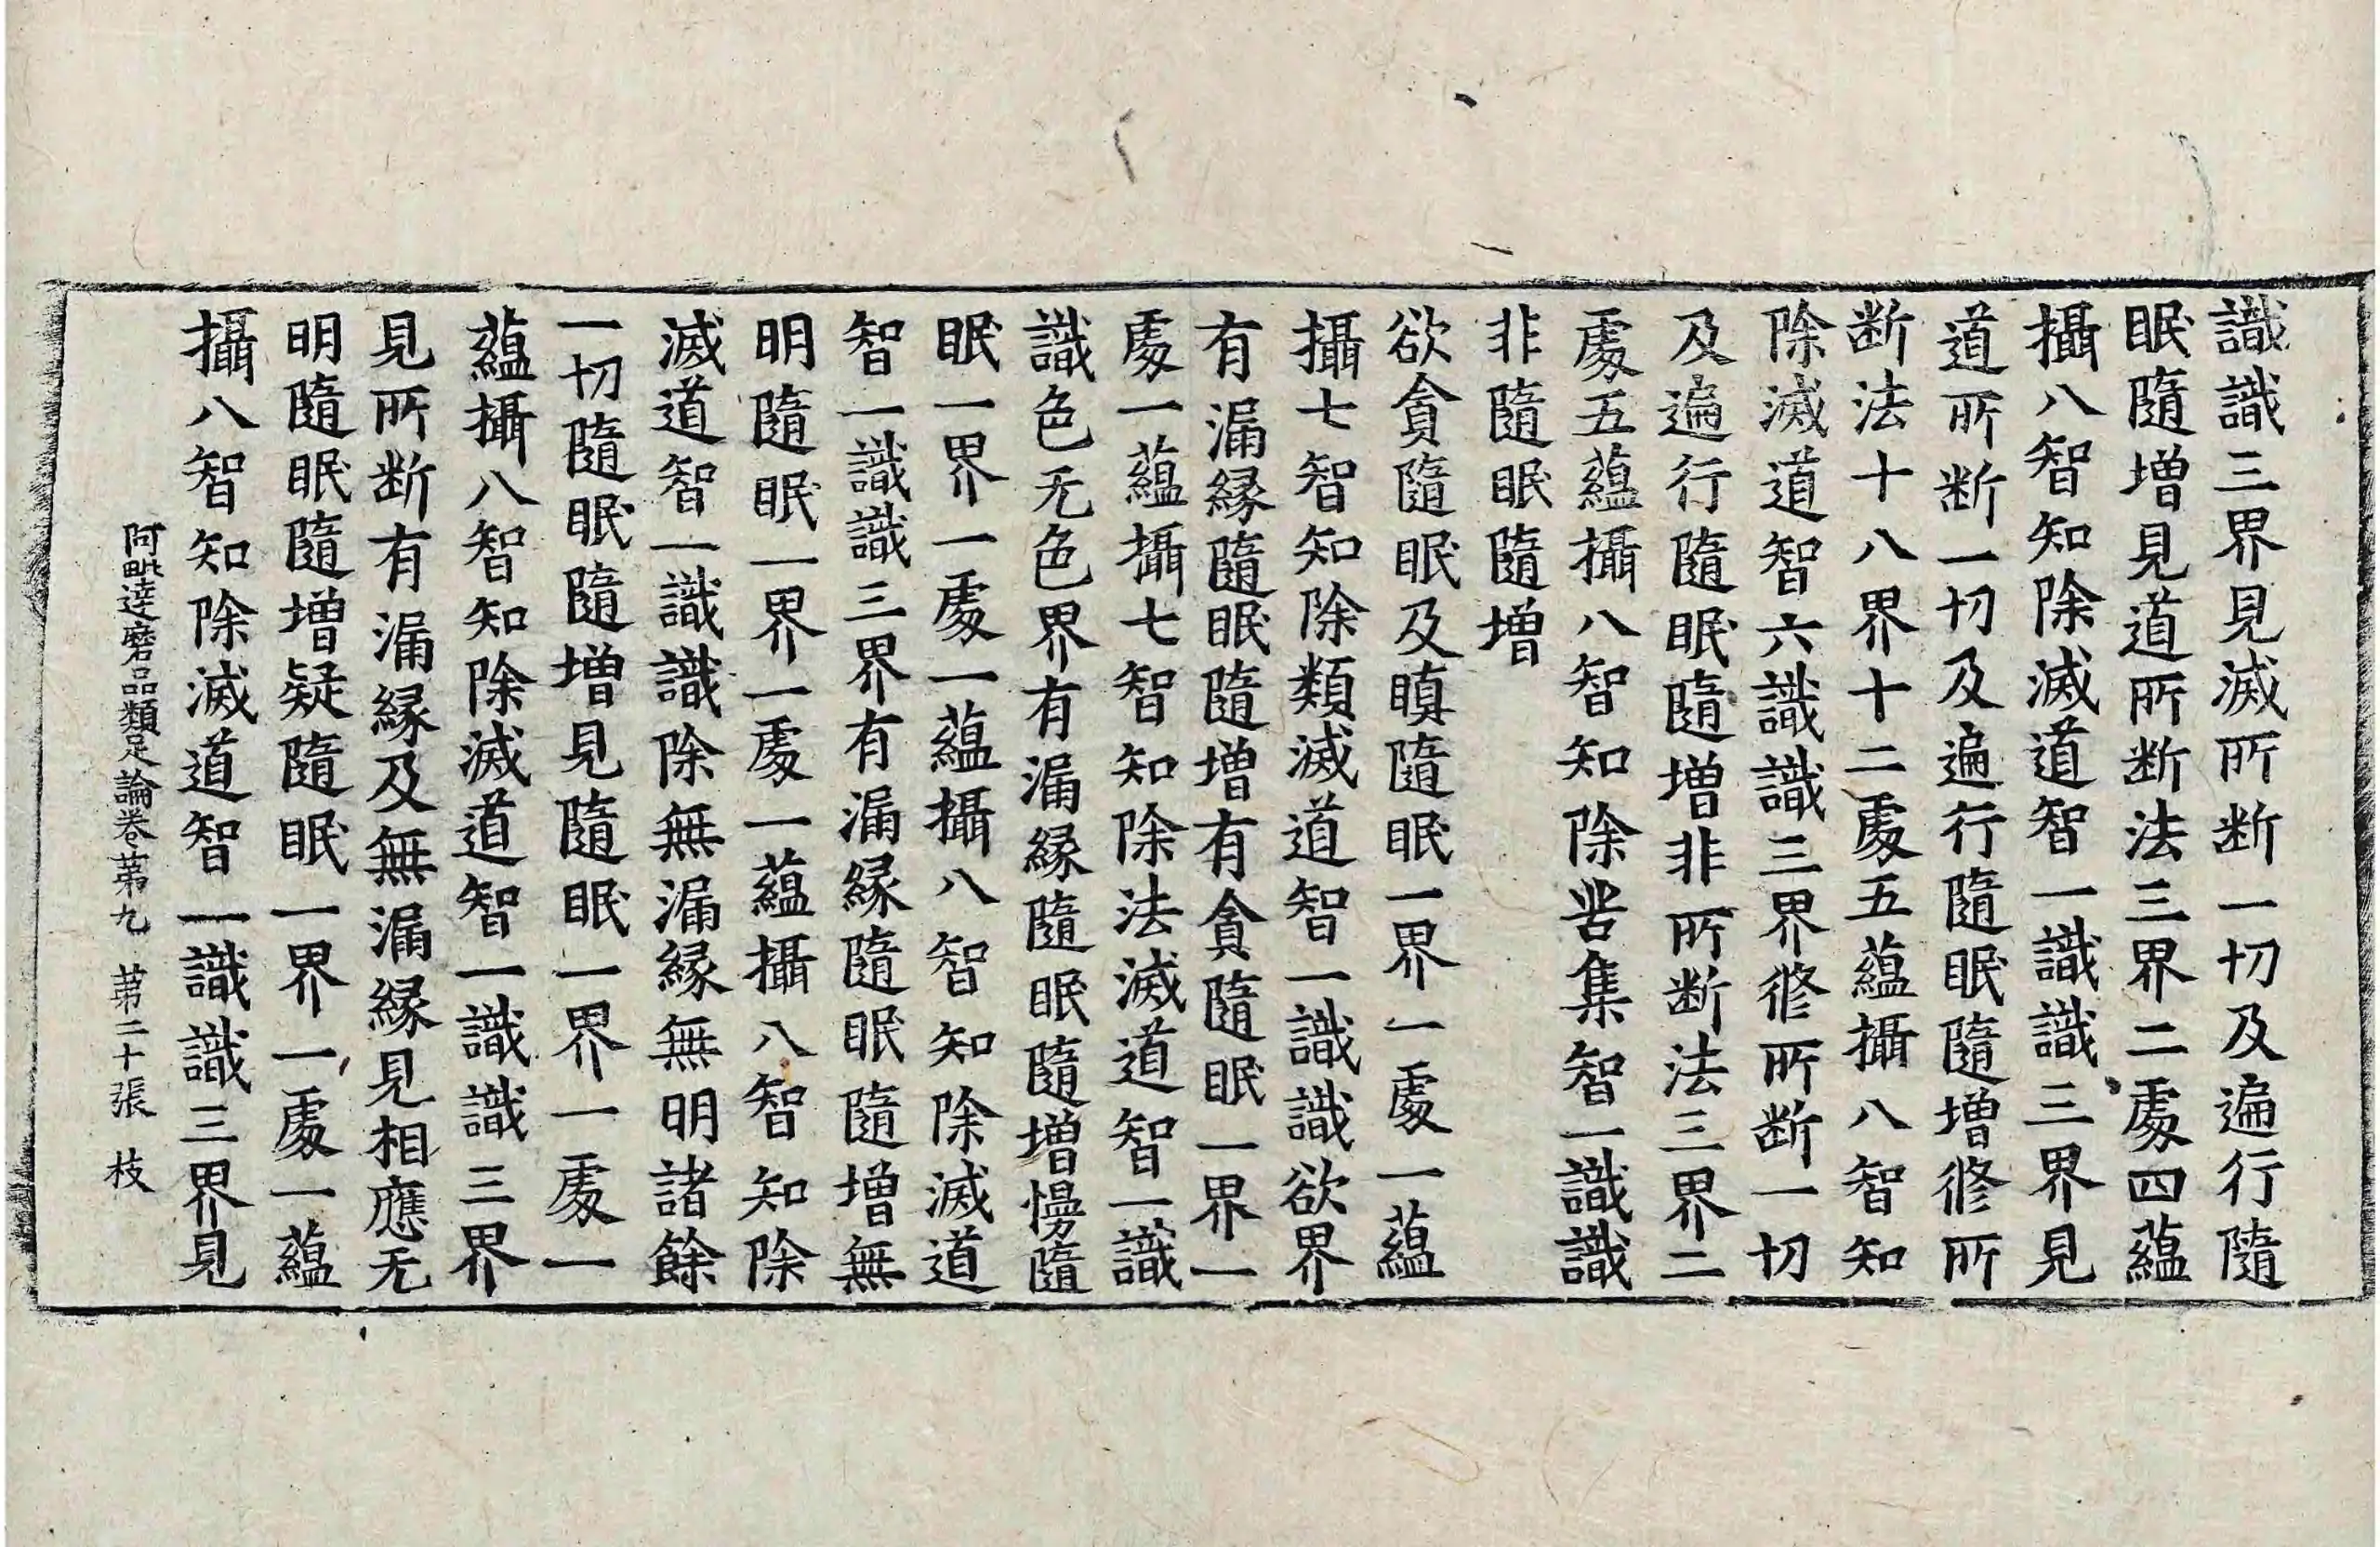 識識三界見滅所断一切及遍行隨
眠隨增見道所断法三界二處四蘊
攝八智知除滅道智一識識三界見
道所断一切及遍行隨眠隨增修所
断法十八界十二處五蘊攝八智知
除滅道智六識識三界修所断一切
及遍行隨眠隨增非所断法三界二
處五蘊攝八智知除苦集智一識識
非隨眠隨增
欲貪隨眠及瞋隨眠一界一處一蘊
攝七智知除類滅道智一識識欲界
有漏緣隨眠隨增有貪隨眠一界一
處一蘊攝七智知除法滅道智一識
識色无色界有漏緣隨眠隨增慢隨
眠一界一處一蘊攝八智知除滅道
智一識識三界有漏緣隨眠隨增無
明隨眠一界一處一蘊攝八智知除
滅道智一識識除無漏緣無明諸餘
一切隨眠隨增見隨眠一界一處一
蘊攝八智知除滅道智一識識三界
見所断有漏緣及無漏緣見相應无
明隨眠隨增疑隨眠一界一處一蘊
攝八智知除滅道智一識識三界見
阿毗達磨品類足論卷第九 第二十張 枝